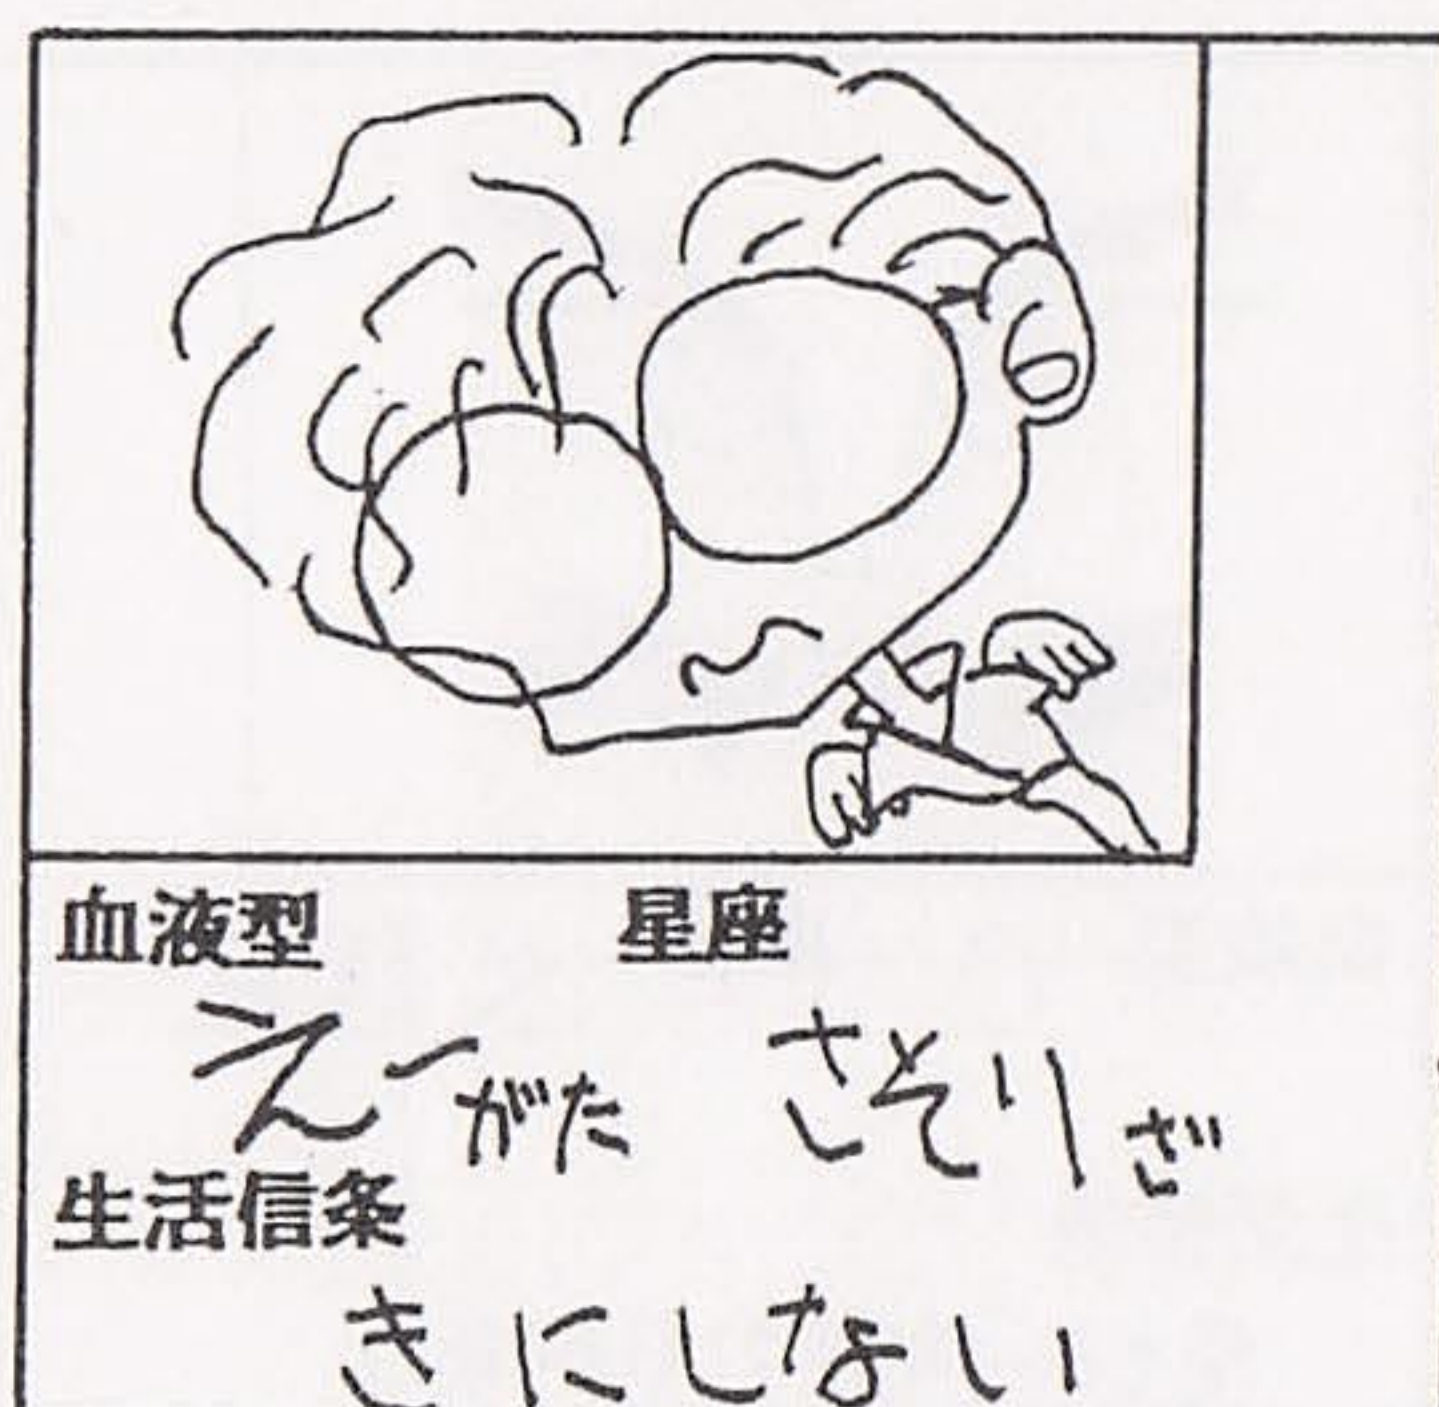 血液型 星座
えーがた さそりざ
生活信条
きにしない